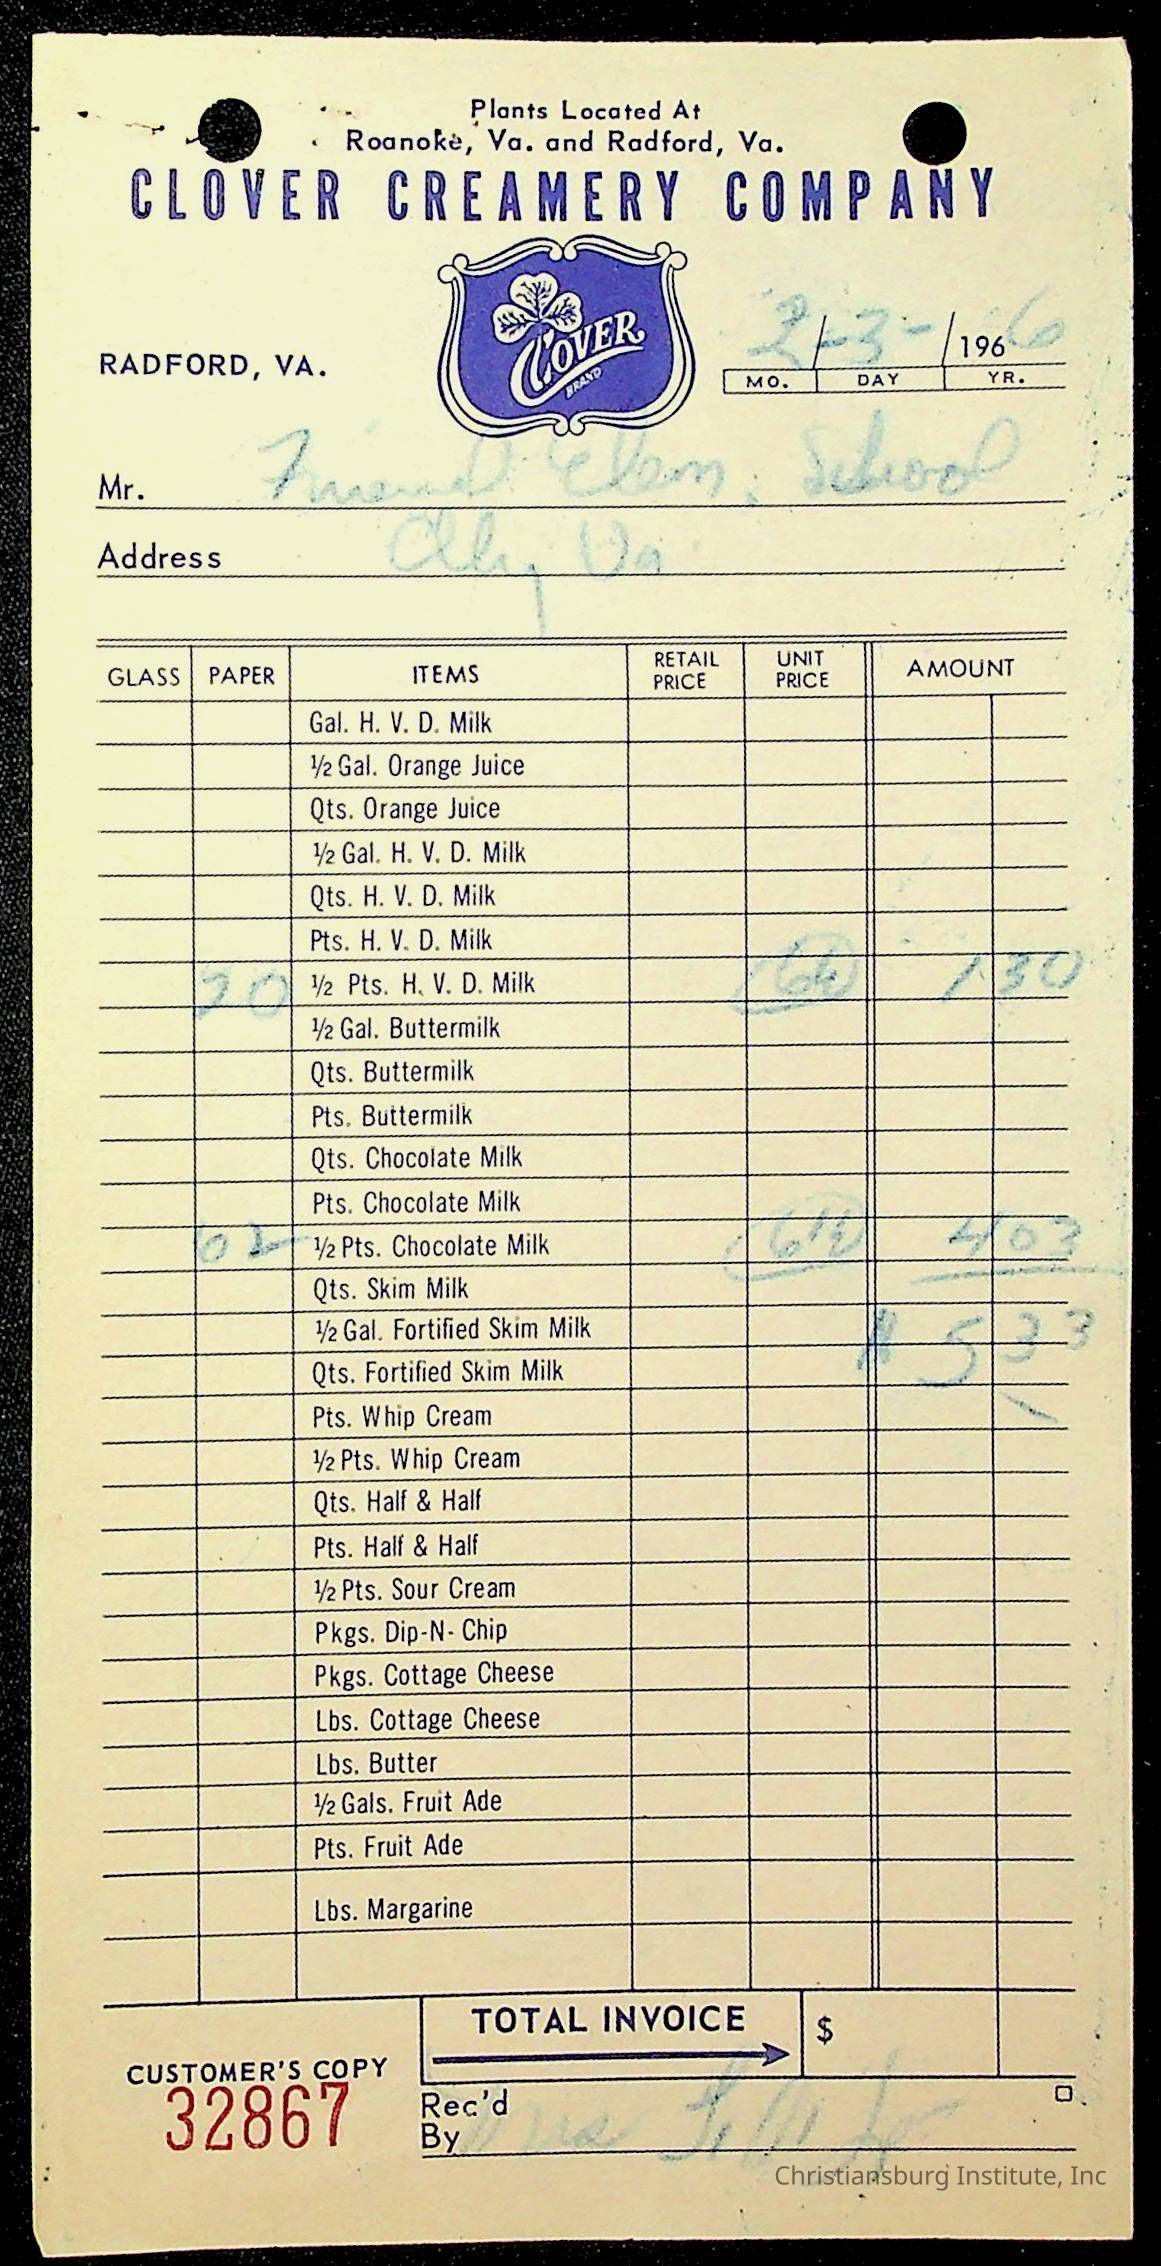 Plants Located At
Roanoke, Va. and Radford, Va.
CLOVER CREAMERY COMPANY
CLOVER
BRAND
RADFORD, VA.
2-3-/1966
MO. DAY YR.
Mr. Friends Elem. School
Address Va
GLASS PAPER ITEMS RETAIL PRICE UNIT PRICE AMOUNT
Gal. H. V. D. Milk
½ Gal. Orange Juice
Qts. Orange Juice
½ Gal. H. V. D. Milk
Qts. H. V. D. Milk
Pts. H. V. D. Milk
20 ½ Pts. H. V. D. Milk 6½ 1 30
½ Gal. Buttermilk
Qts. Buttermilk
Pts. Buttermilk
Qts. Chocolate Milk
Pts. Chocolate Milk
62 ½ Pts. Chocolate Milk 6½ 4 03
Qts. Skim Milk
½ Gal. Fortified Skim Milk $ 5 33
Qts. Fortified Skim Milk
Pts. Whip Cream
½ Pts. Whip Cream
Qts. Half & Half
Pts. Half & Half
½ Pts. Sour Cream
Pkgs. Dip-N-Chip
Pkgs. Cottage Cheese
Lbs. Cottage Cheese
Lbs. Butter
½ Gals. Fruit Ade
Pts. Fruit Ade
Lbs. Margarine
TOTAL INVOICE $
CUSTOMER'S COPY
32867
Rec'd
By Mrs
Christiansburg Institute, Inc